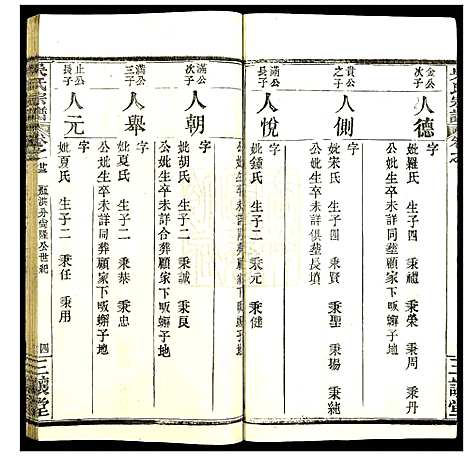 金公次子 人德 字
妣羅氏 生子四 秉禮 秉榮 秉周 秉丹
公妣生卒未詳同墓顧家下畈蠏子地
貴公之子 人側 字
妣宋氏 生子四 秉賢 秉聖 秉場 秉純
公妣生卒未詳俱葬長墳
滿公長子 人悅 字
妣鍾氏 生子二 秉元 秉健
滿公次子 人朝 字
妣胡氏 生子二 秉誠 秉良
公妣生卒未詳合葬顧家下畈蠏子地
滿公三子 人舉 字
妣夏氏 生子二 秉恭 秉忠
公妣生卒未詳同葬顧家下畈蠏子地
止公長子 人元 字
妣夏氏 生子二 秉任 秉用
吳氏宗譜 卷之 公世紀 四 三讓堂